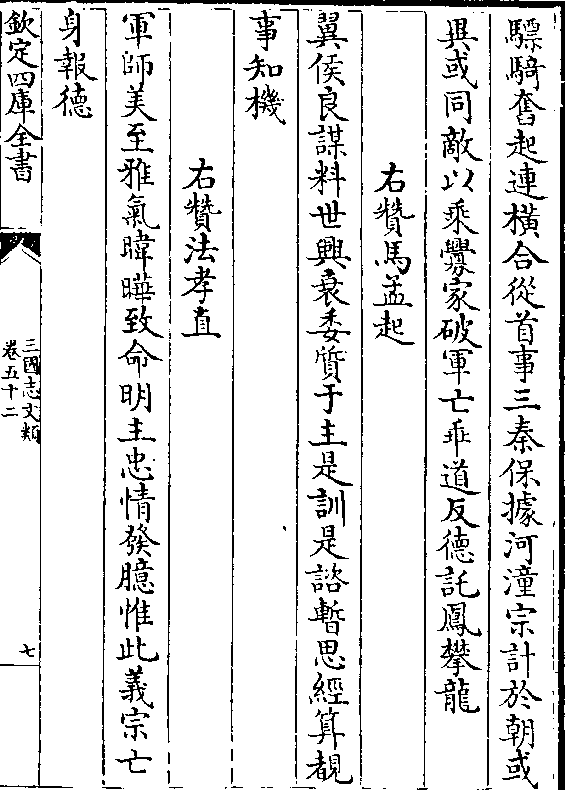 驃騎奮起連橫合從首事三秦保據河潼宗計於朝或
異或同敵以乘釁家破軍亡乖道反德託鳳攀龍
右贊馬孟起
翼侯良謀料世興衰委質于主是訓是諮暫思經算覩
事知機
右贊法孝直
軍師美至雅氣暐曄致命明主忠情發臆惟此義宗亡
身報德
欽定四庫全書
三國志文類
卷五十二
七